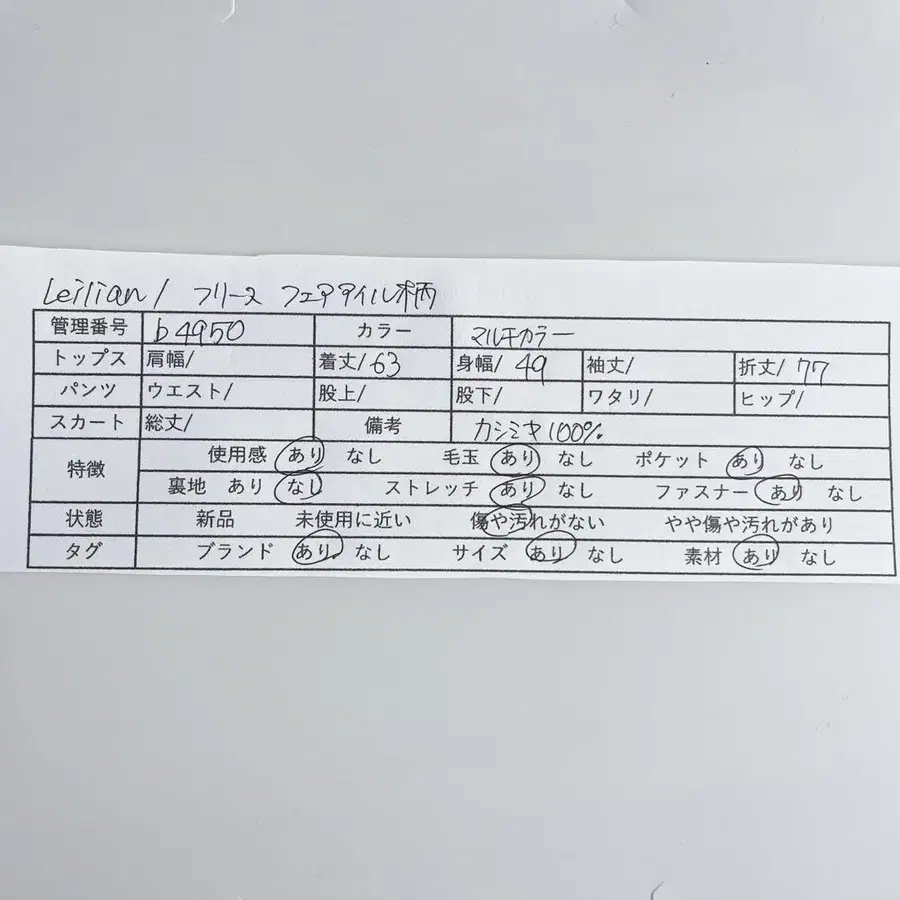 Leilian / フリース フェアアイル柄
管理番号 b4950 カラー マルチカラー
トップス 肩幅/ 着丈/ 63 身幅/ 49 袖丈/ 裄丈/ 77
パンツ ウエスト/ 股上/ 股下/ ワタリ/ ヒップ/
スカート 総丈/ 備考 カシミヤ100%
特徴 使用感 あり なし 毛玉 あり なし ポケット あり なし
裏地 あり なし ストレッチ あり なし ファスナー あり なし
状態 新品 未使用に近い 傷や汚れがない やや傷や汚れがあり
タグ ブランド あり なし サイズ あり なし 素材 あり なし